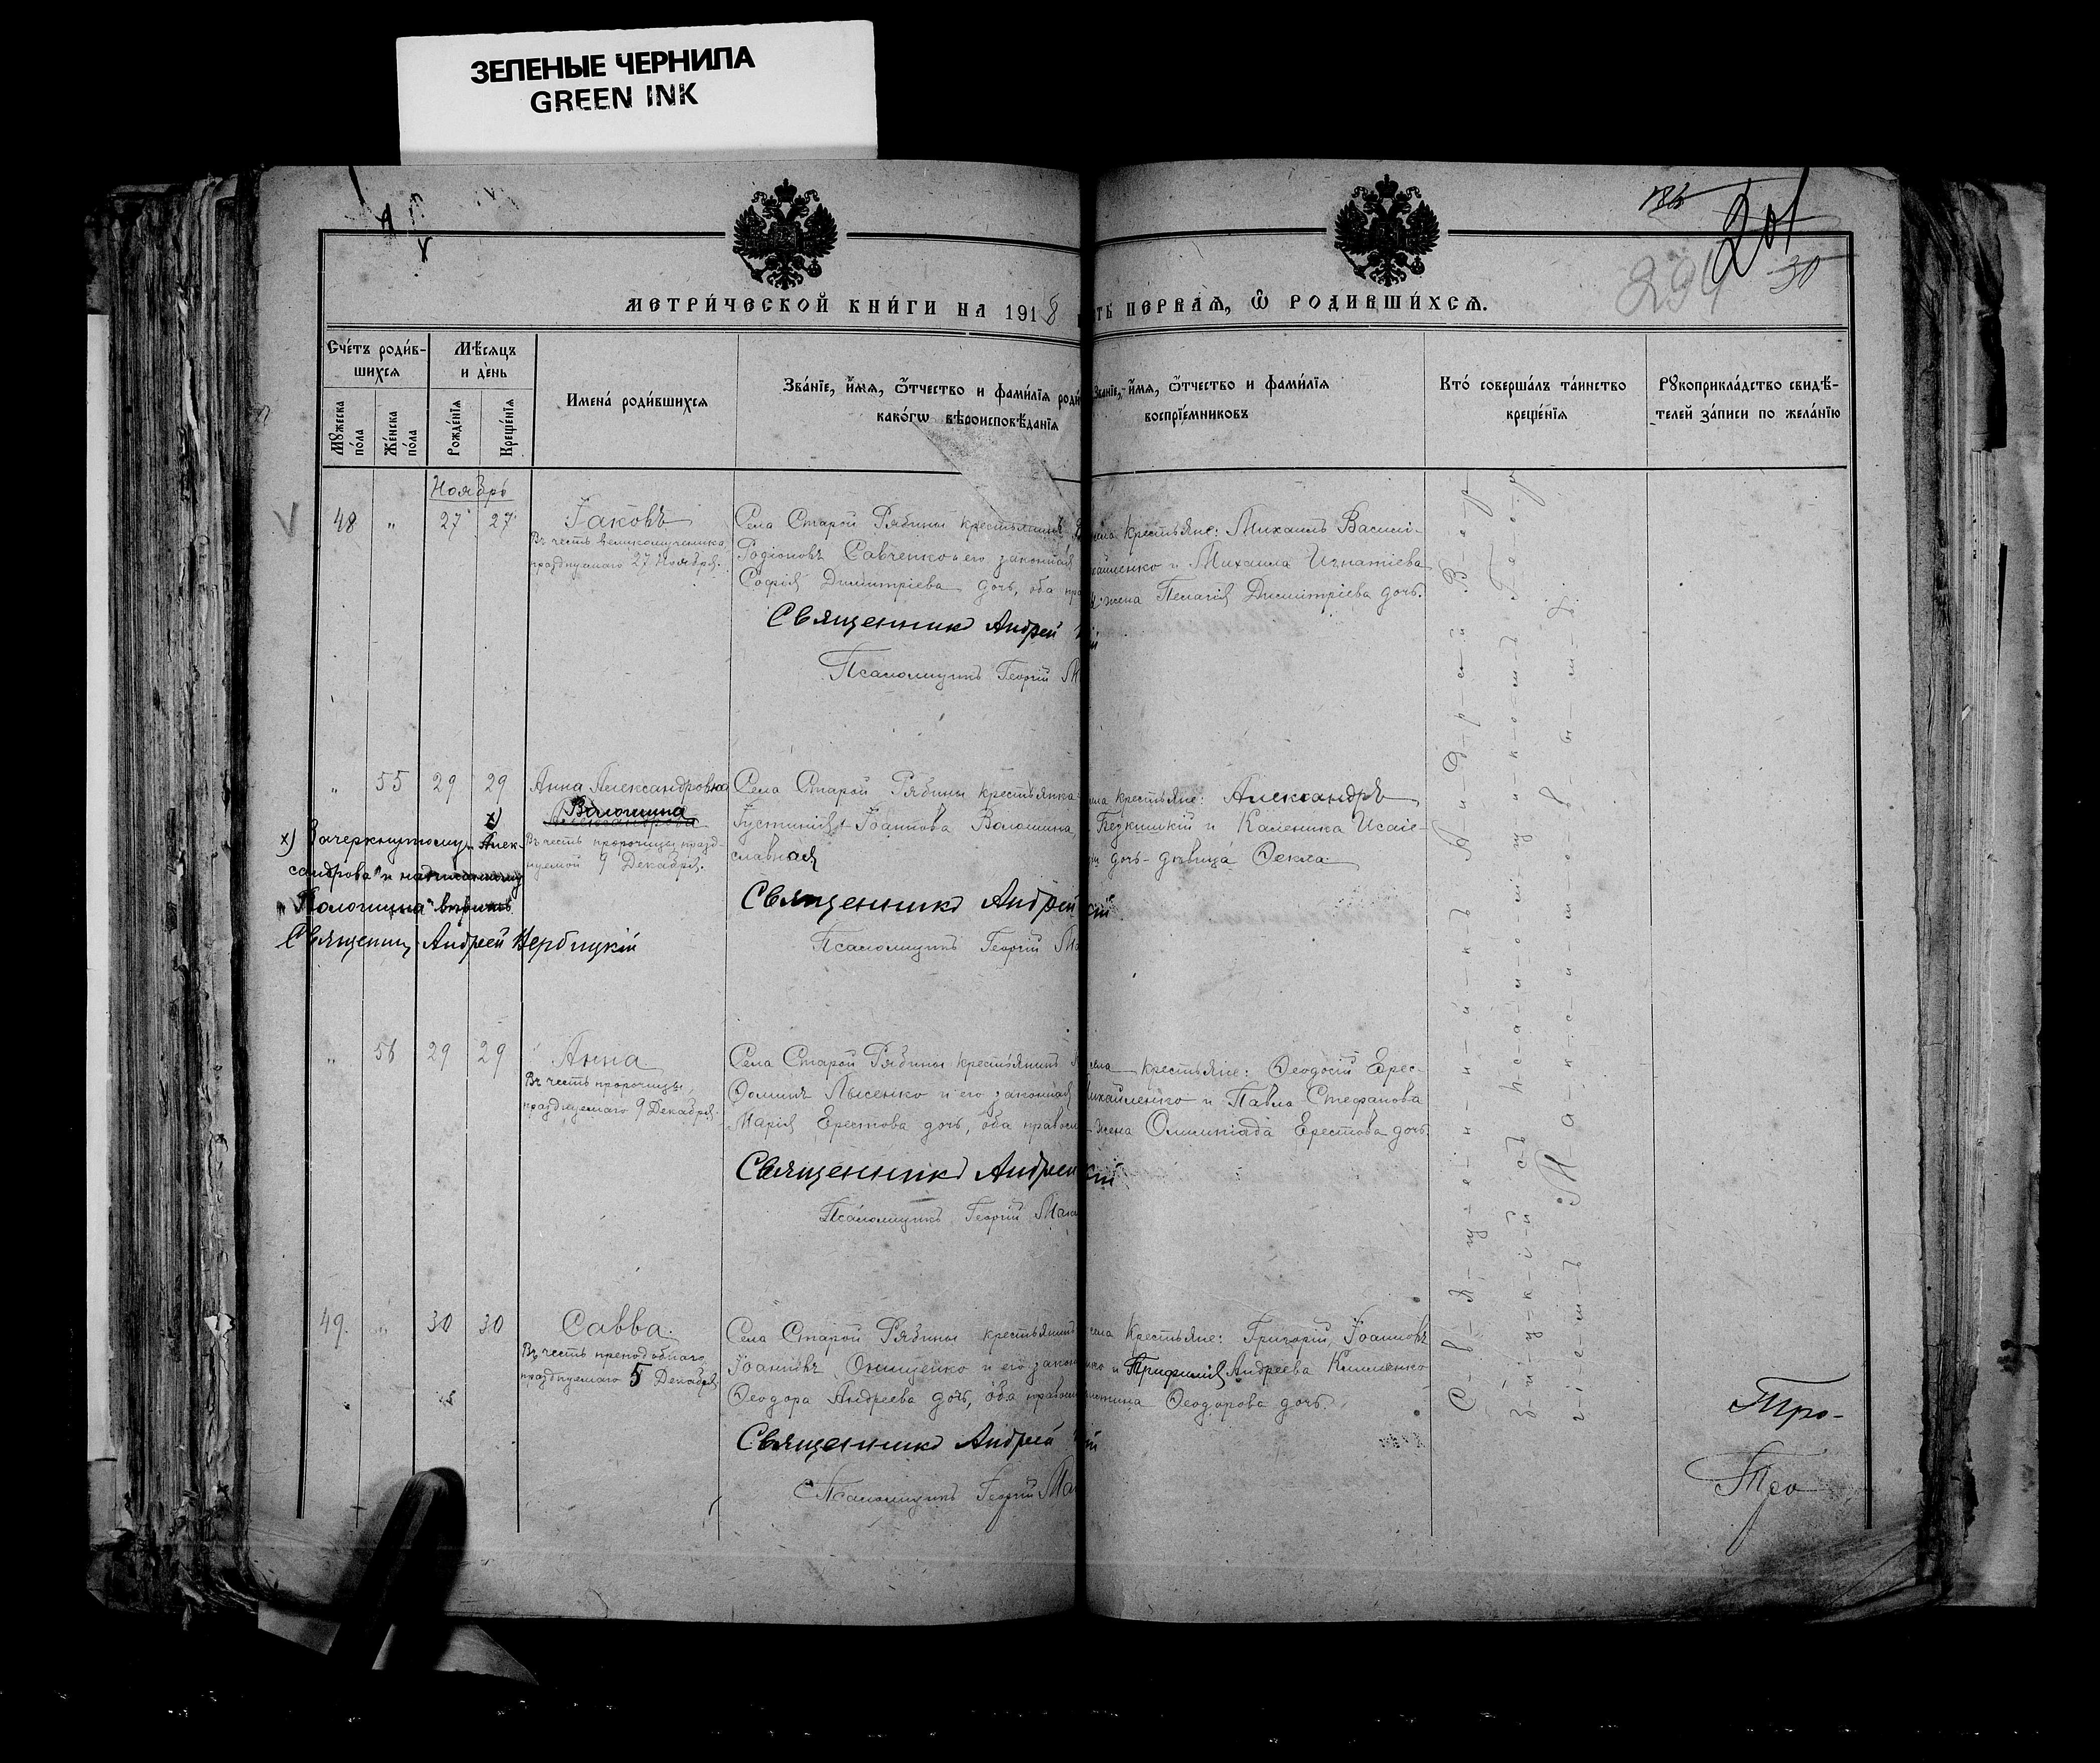 ЗЕЛЕНЫЕ ЧЕРНИЛА
GREEN INK
201
30
МЕТРИ́ЧЕСКОЙ КНИ́ГИ НА 1918
ПЕРВАѦ, Ѽ РОДИВШИ́ХСѦ.
Сче́тъ роди́в-
шихсѧ
Мꙋ́жеска по́ла
Же́нска по́ла
Мѣ́сѧцъ и де́нь
Рожде́нїѧ
Креще́нїѧ
Имена́ роди́вшихсѧ
Зва́нїе, и҆́мѧ, ѻ҆́тчество и фами́лїѧ
како́гѡ вѣроисповѣ́данїѧ
Зва́нїе, и҆́мѧ, ѻ҆́тчество и фами́лїѧ
воспрїе́мниковъ
Кто́ соверша́лъ та́инство
креще́нїѧ
Рꙋкоприкла́дство свидѣ́-
телей за́писи по жела́нїю
Ноябрь
48 " 27 27
Іаковъ
Въ честь великомученика,
празднуемаго 27 Ноября.
Села Старой Рябины крестьянинъ
Родіоновъ Савченко и его законная
Софія Димитріева дочь, оба
Священникъ Андрей
Псаломщикъ Георгій
крестьяне: Михаилъ Василі-
и Михаила Игнатіева
жена Пелагія Димитріева дочь.
" 55 29 29
Анна Александровна
Волошина
Александрова
Въ честь пророчицы празд-
нуемой 9 Декабря.
Села Старой Рябины крестьянка
Іустинія Іоаннова Волошина,
славная
Священникъ Андрей
Псаломщикъ Георгій
крестьяне: Александръ
и Каленика Исаіе-
дочь - дѣвица Ѳекла.
х) Зачеркнутому "Алек-
сандрова" и надписанному
"Волошина" вѣрить
Священникъ Андрей Вербицкій
" 56 29 29
Анна
Въ честь пророчицы,
празднуемаго 9 Декабря.
Села Старой Рябины крестьянинъ
Ѳоминъ Лысенко и его законная
Марія Ерестова дочь, оба правосл
Священникъ Андрей
Псаломщикъ Георгій
села крестьяне: Ѳеодосій Ерес-
Михайленко и Павла Стефанова
жена Олимпіада Ерестова дочь.
49. " 30 30
Савва.
Въ честь преподобнаго,
празднуемаго 5 Декабря
Села Старой Рябины крестьянинъ
Іоанновъ Онищенко и его закон
Ѳеодора Андреева дочь, оба правосл
Священникъ Андрей
Псаломщикъ Георгій
села крестьяне: Григорій Іоанновъ
и Трифилія Андреева Клименко
Ѳеодорова дочь.
С-в-я-щ-е-н-н-и-к-ъ А-н-д-р-е-й В-е-р-
б-и-ц-к-і-й съ п-с-а-л-о-м-щ-и-к-о-м-ъ Г-е-о-р-
г-і-е-м-ъ М-а-к-с-и-м-о-в-ы-м-ъ.
Тро-
Тро